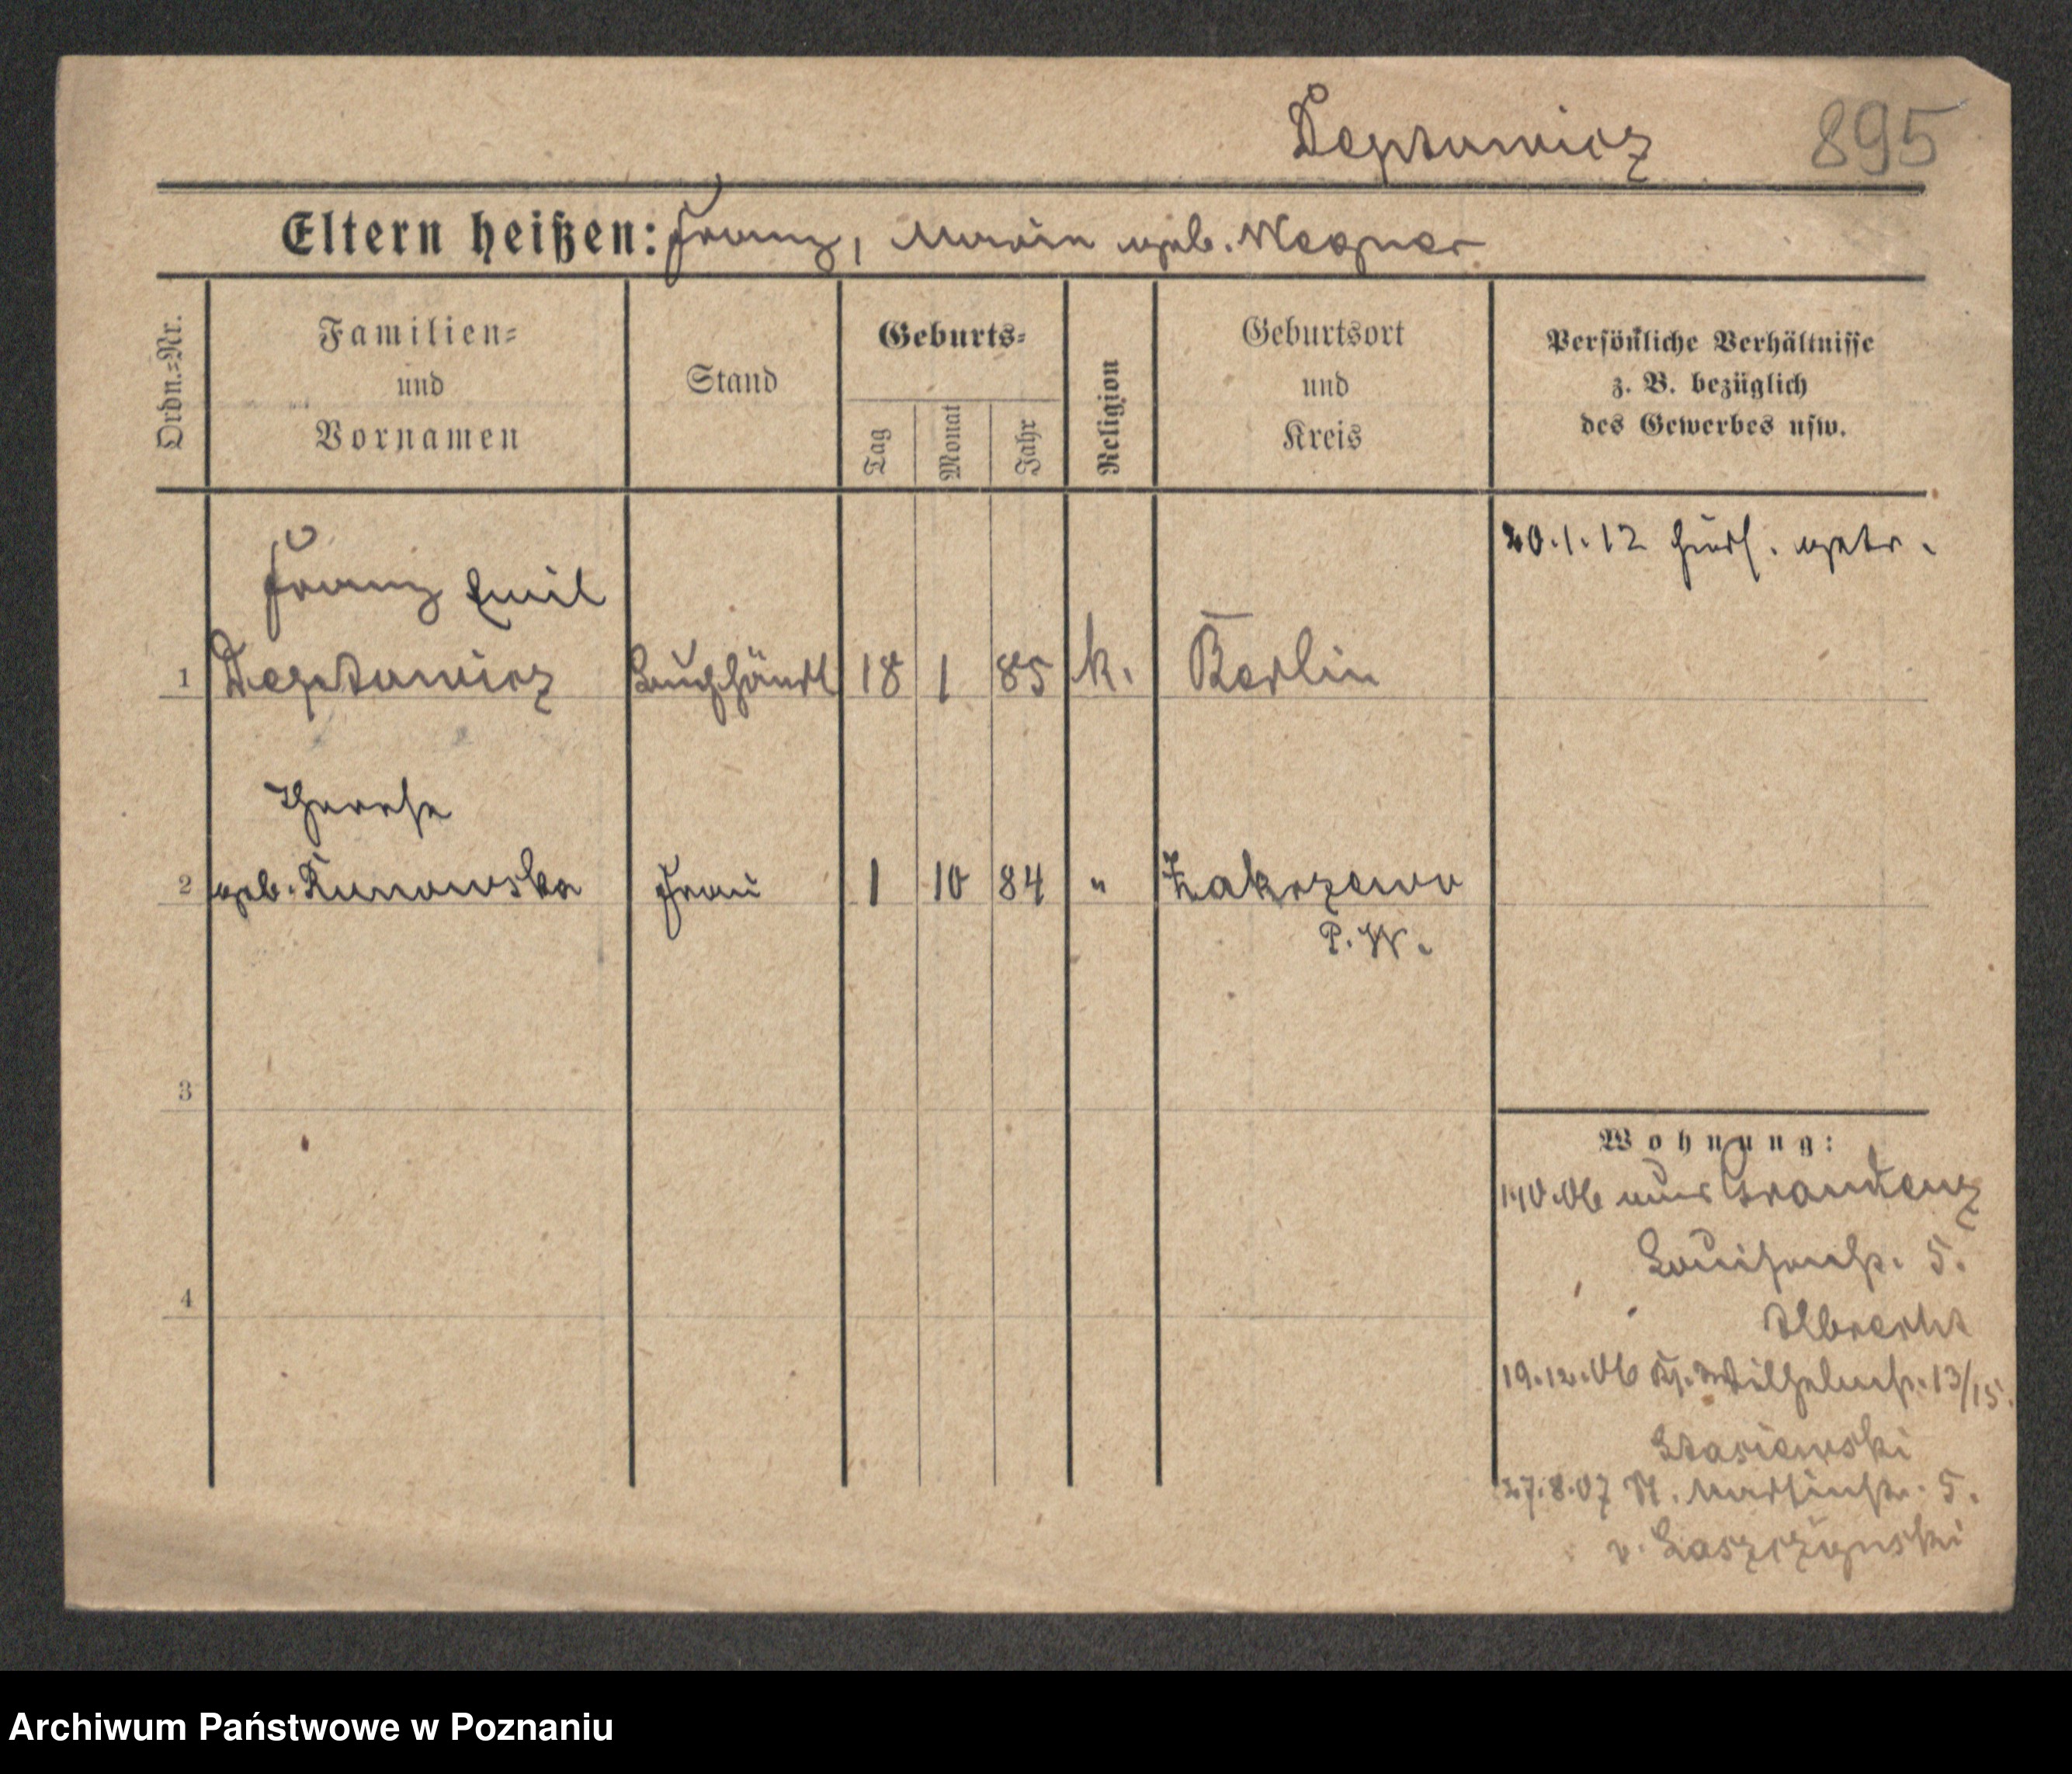 Deptowicz 895
Eltern heißen: Franz, Maria geb. Wegner
Ordn.-Nr.
Familien-
und
Vornamen
Stand
Geburts-
Tag
Monat
Jahr
Religion
Geburtsort
und
Kreis
Persönliche Verhältnisse
z. B. bezüglich
des Gewerbes usw.
20.1.12 getr.
Franz Emil
1 Deptowicz Buchhändl 18 1 85 k. Berlin
Therese
2 geb. Kunowska Frau 1 10 84 " Zakrzewo
P. W.
3
Wohnung:
1.10.06 aus Graudenz
Louisenstr. 5.
4
Albrecht
19.12.06 Kg. Wilhelmstr. 13/15.
Stasiewski
27.8.07 St. Martinstr. 5.
v. Laszczynski
Archiwum Państwowe w Poznaniu